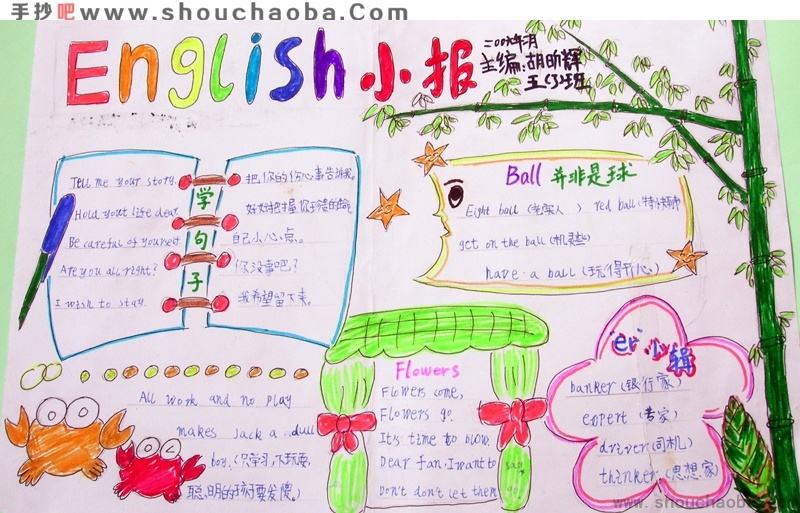 手抄吧 www.shouchaoba.com
English小报
主编:胡昕辉
五(2)班
学句子
Tell me your story.
把你的伤心事告诉我。
Hold yout life dear.
Be careful of yourself
自己小心点。
Are you all right?
你没事吧?
I wish to stay.
我希望留下来。
Ball 并非是球
Eight ball (老实人) red ball (特快列车)
get on the ball (机灵些)
have a ball (玩得开心)
All work and no play
makes Jack a dull
boy. (只学习,不玩耍,
聪明的孩子要变傻。)
Flowers
Flowers come,
Flowers go.
It's time to blow.
Dear fan, I want to say
Don't don't let them go.
"er"小辑
banker (银行家)
expert (专家)
driver (司机)
thinker (思想家)
www.shouchaoba.com